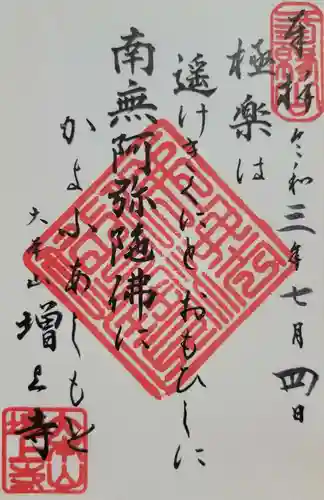 奉拝
令和三年七月四日
極楽は
遥けきくにとおもひしに
南無阿弥陀佛に
かよふあしもと
大本山
増上寺